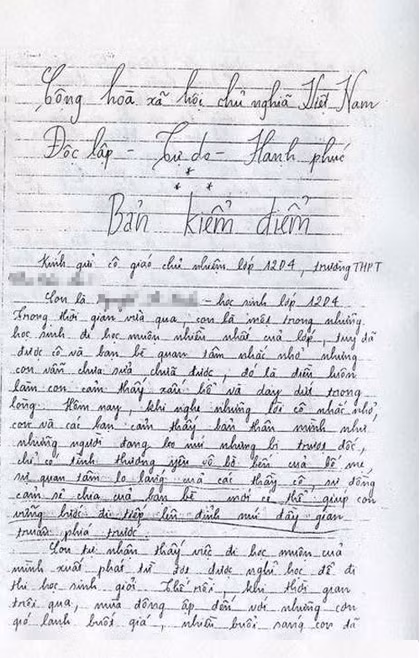 Cộng hoà xã hội chủ nghĩa Việt Nam
Độc lập - Tự do - Hạnh phúc
* * *
Bản kiểm điểm
Kính gửi cô giáo chủ nhiệm lớp 12D4, trường THPT
Con là - học sinh lớp 12D4
Trong thời gian vừa qua, con là một trong những
học sinh đi học muộn nhiều nhất của lớp, tuy đã
được cô và bạn bè quan tâm nhắc nhở nhưng
con vẫn chưa sửa chữa được, đó là điều luôn
làm con cảm thấy xấu hổ và day dứt trong
lòng. Hôm nay, khi nghe những lời cô nhắc nhở,
con và các bạn cảm thấy bản thân mình như
những người đang leo núi nhưng bị trượt dốc,
chỉ có tình thương yêu vô bờ bến của bố mẹ
sự quan tâm lo lắng của các thầy cô, sự đồng
cảm sẻ chia của bạn bè mới có thể giúp con
vững bước đi tiếp lên đỉnh núi đầy gian
truân phía trước.
Con tự nhận thấy việc đi học muộn của
mình xuất phát từ đợt được nghỉ học để đi
thi học sinh giỏi. Thế rồi, khi thời gian
trôi qua, mùa đông ập đến với những cơn
gió lạnh buốt giá, nhiều buổi sáng con đã